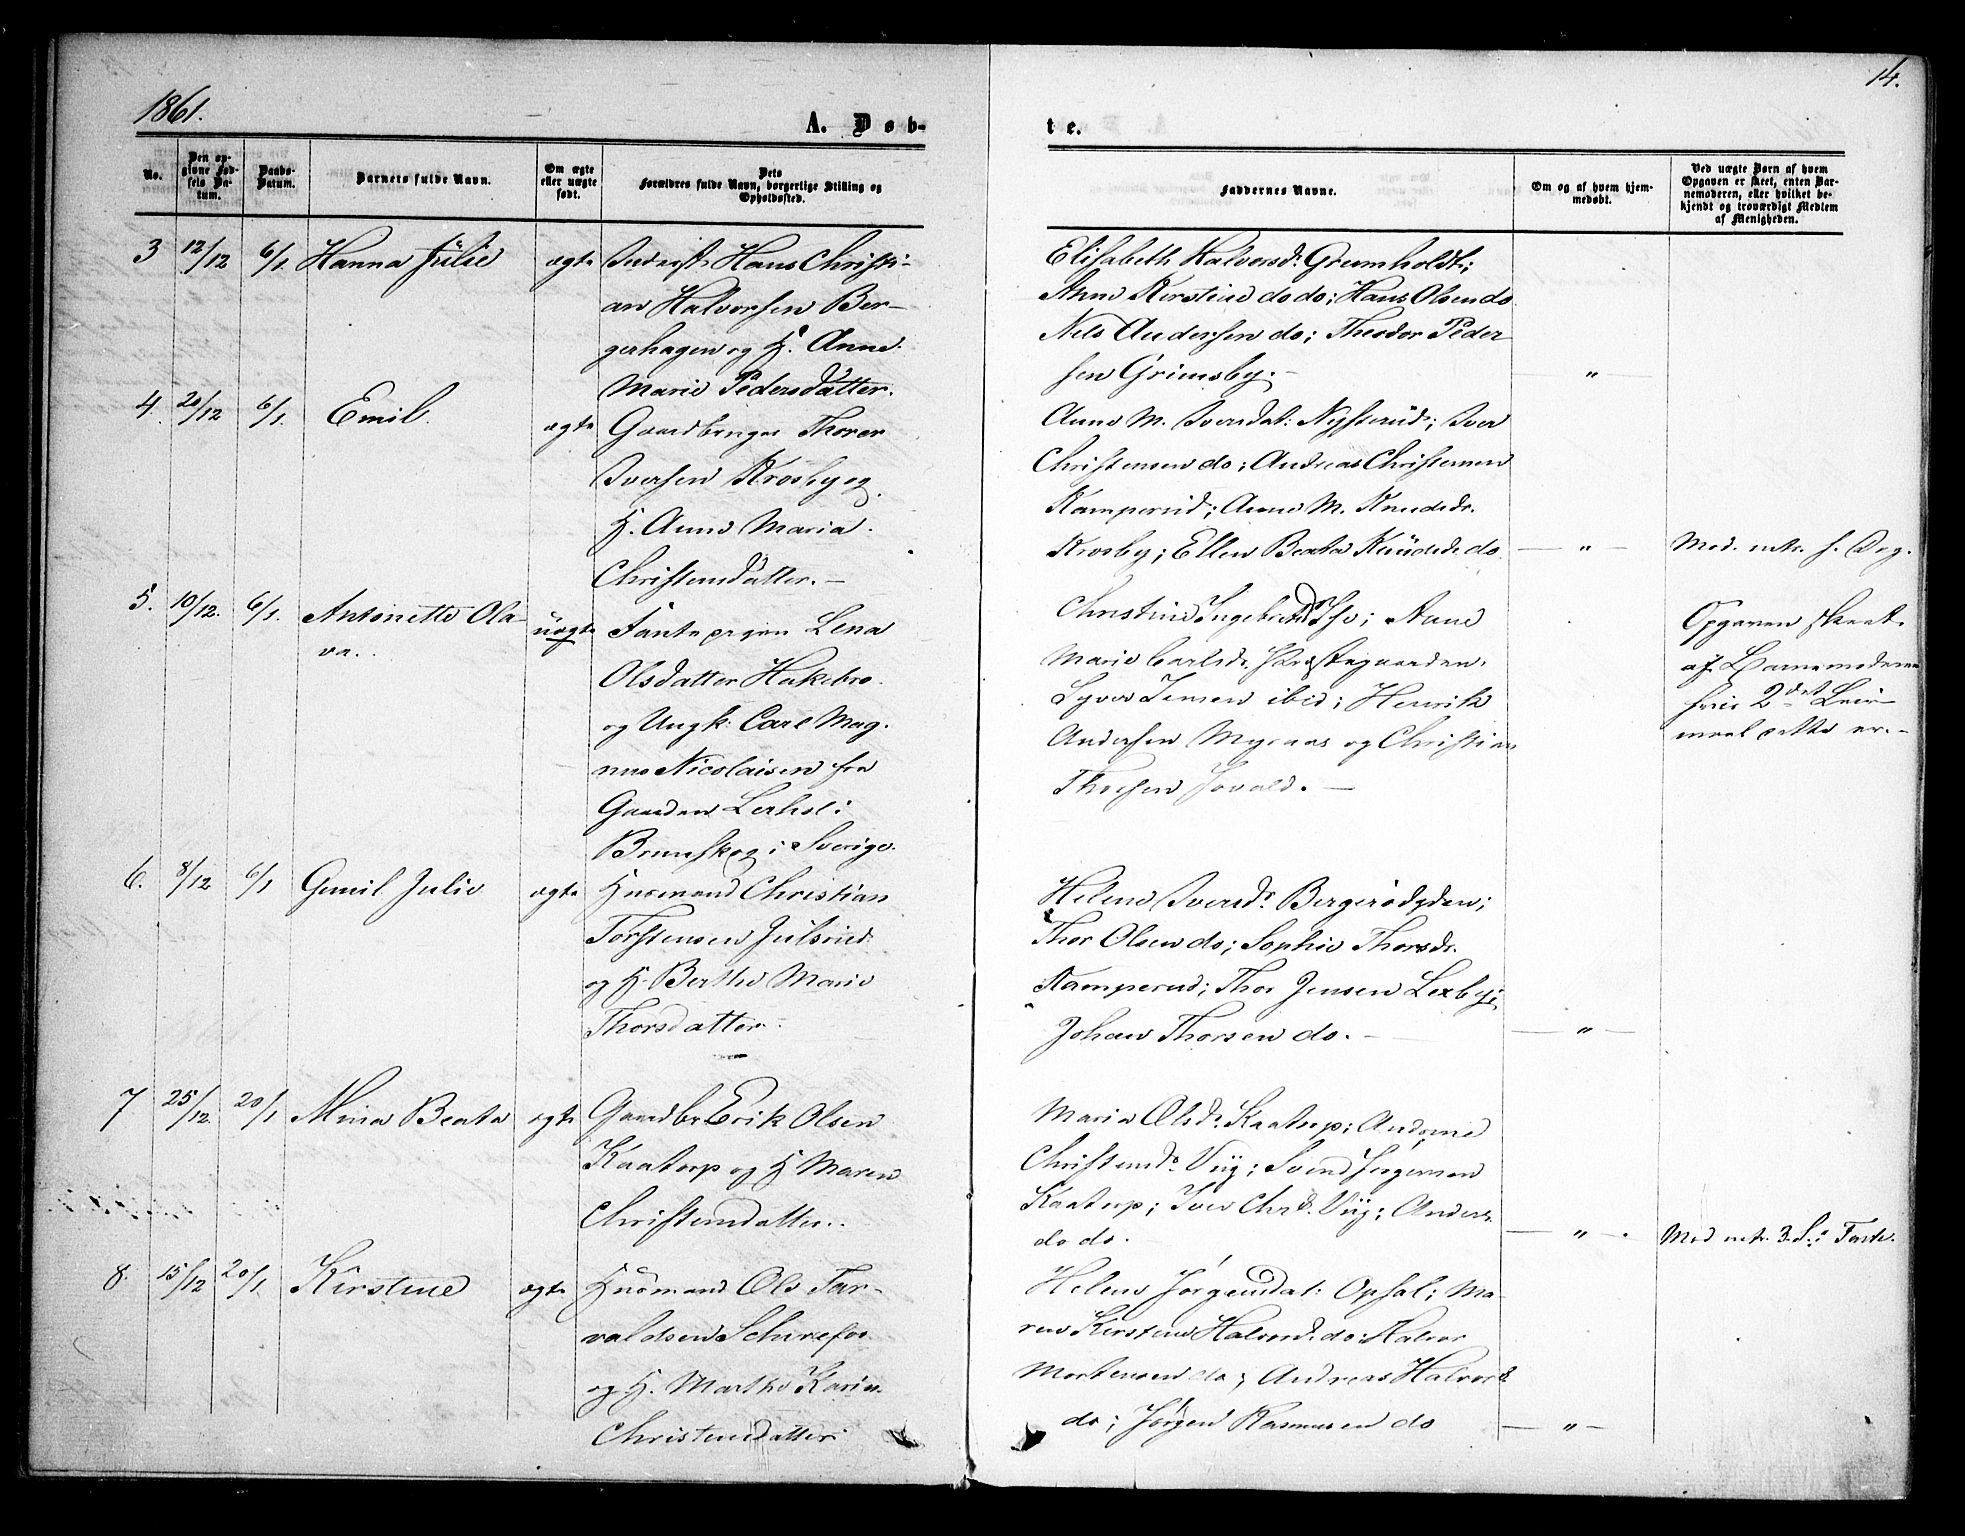 1861.
14.
A. Døb-
te.
No.
Den op-
givne Fød-
sels Da-
tum.
Daabs-
Datum.
Barnets fulde Navn.
Om ægte
eller uægte
født.
Dets
Forældres fulde Navn, borgerlige Stilling og
Opholdssted.
Faddernes Navne.
Om og af hvem hjem-
medøbt.
Ved uægte Børn af hvem
Opgaven er skeet, enten Bar-
nemoderen, eller hvilket be-
kjendt og troværdigt Medlem
af Menigheden.
3 12/12 6/1 Hanna Julie ægte Hans Christi-
an Halvorsen Ber-
gerhagen og H. Anne
Marie Pedersdatter.
Elisabeth Halvorsd. Grumholdt;
Anne Kerstine do do; Hans Olsen do
Nils Andersen do; Theodor Peder
sen Grimsby. —
— " —
4. 20/12 6/1. Emil. ægte Gaardbruger Thorer
Iversen Krosby og
H. Anne Maria
Christensdatter. —
Anne M. Iversdat: Nysterud; Iver
Christensen do; Andreas Christensen
Kamperud; Anne M. Knudsdr.
Krosby; Ellen Beata Knudsd. do
— " — Mod. f.
5. 10/12. 6/1. Antonette Ola-
va. uægte Lena
Olsdatter Hakebro
og Ungk. Carl Mag-
nus Nicolaisen fra
Gaarden i
Brunskog i Sverige.
Christine Anne
Marie Carlsd. Præstegaarden.
Syver Jensen ibid; Henrik
Andersen Myraas og Christian
Opgaven skeet
af Barnemoderen
hvis 2det Leier-
maal dette er. —
6. 8/12 6/1 Gunil Julie ægte Husmand Christian
Torstensen Julsrud
og H. Berthe Marie
Thorsdatter.
Helene Iversdr. Bergerødegden;
Thor Olsen do; Sophie Thorsdr.
Kamperud; Thor Jensen Lexby;
Johan Thorsen do. —
— " —
7 25/12. 20/1 Mina Beata ægte Gaardbr Erik Olsen
Kaatorp og H Maren
Christensdatter.
Maria Olsdr. Kaatorp; Andrine
Christensdr. Viig; Svend Jørgensen
Kaatorp; Iver Chrs. Viig; Anders
do do.
— " — . Mod 3. S.
8. 15/12 20/1. Kirstine ægte Husmand Ole Tar-
valdsen
og H. Marthe Karine
Christensdatter
Helene Jørgensdat: Opsal; Ma-
ren Kirstine Halvorsd. do. Halvor
Mortensen do; Andreas Halvors.
do; Jørgen Rasmusen do
— " —